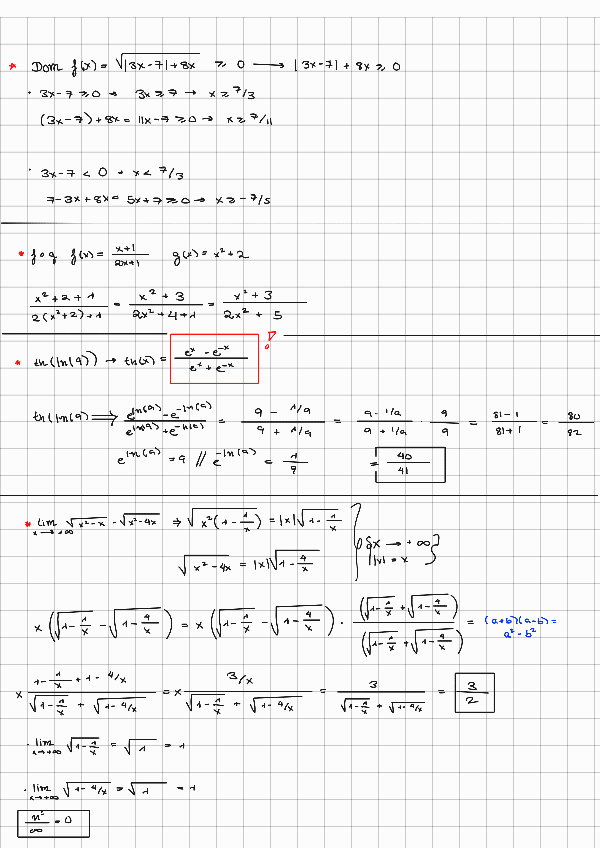 * Dom f(x) = √(|3x-7|+8x) ≥ 0 → |3x-7| + 8x ≥ 0
· 3x-7 ≥ 0 → 3x ≥ 7 → x ≥ 7/3
(3x-7)+8x = 11x-7 ≥ 0 → x ≥ 7/11
· 3x-7 < 0 → x < 7/3
7-3x+8x = 5x+7 ≥ 0 → x ≥ -7/5
* f∘g f(x) = (x+1)/(2x+1) g(x) = x²+2
(x²+2+1)/(2(x²+2)+1) = (x²+3)/(2x²+4+1) = (x²+3)/(2x²+5)
* th(ln(9)) → th(x) = (eˣ - e⁻ˣ)/(eˣ + e⁻ˣ) !
th(ln(9) ⇒ (e^ln(9) - e^-ln(9))/(e^ln(9) + e^-ln(9)) = (9 - 1/9)/(9 + 1/9) = (9 - 1/9)/(9 + 1/9) · 9/9 = (81-1)/(81+1) = 80/82
e^ln(9) = 9 // e^-ln(9) = 1/9 = 40/41
* lim x→+∞ √(x²-x) - √(x²-4x) ⇒ √(x²(1-1/x)) = |x|√(1-1/x)
√(x²-4x) = |x|√(1-4/x)
x → +∞
|x| = x
x(√(1-1/x) - √(1-4/x)) = x(√(1-1/x) - √(1-4/x)) · (√(1-1/x) + √(1-4/x))/(√(1-1/x) + √(1-4/x)) = (a+b)(a-b) =
a² - b²
x (1-1/x+1-4/x)/(√(1-1/x) + √(1-4/x)) = x (3/x)/(√(1-1/x) + √(1-4/x)) = 3/(√(1-1/x) + √(1-4/x)) = 3/2
· lim x→+∞ √(1-1/x) = √1 = 1
· lim x→+∞ √(1-4/x) = √1 = 1
n°/∞ = 0